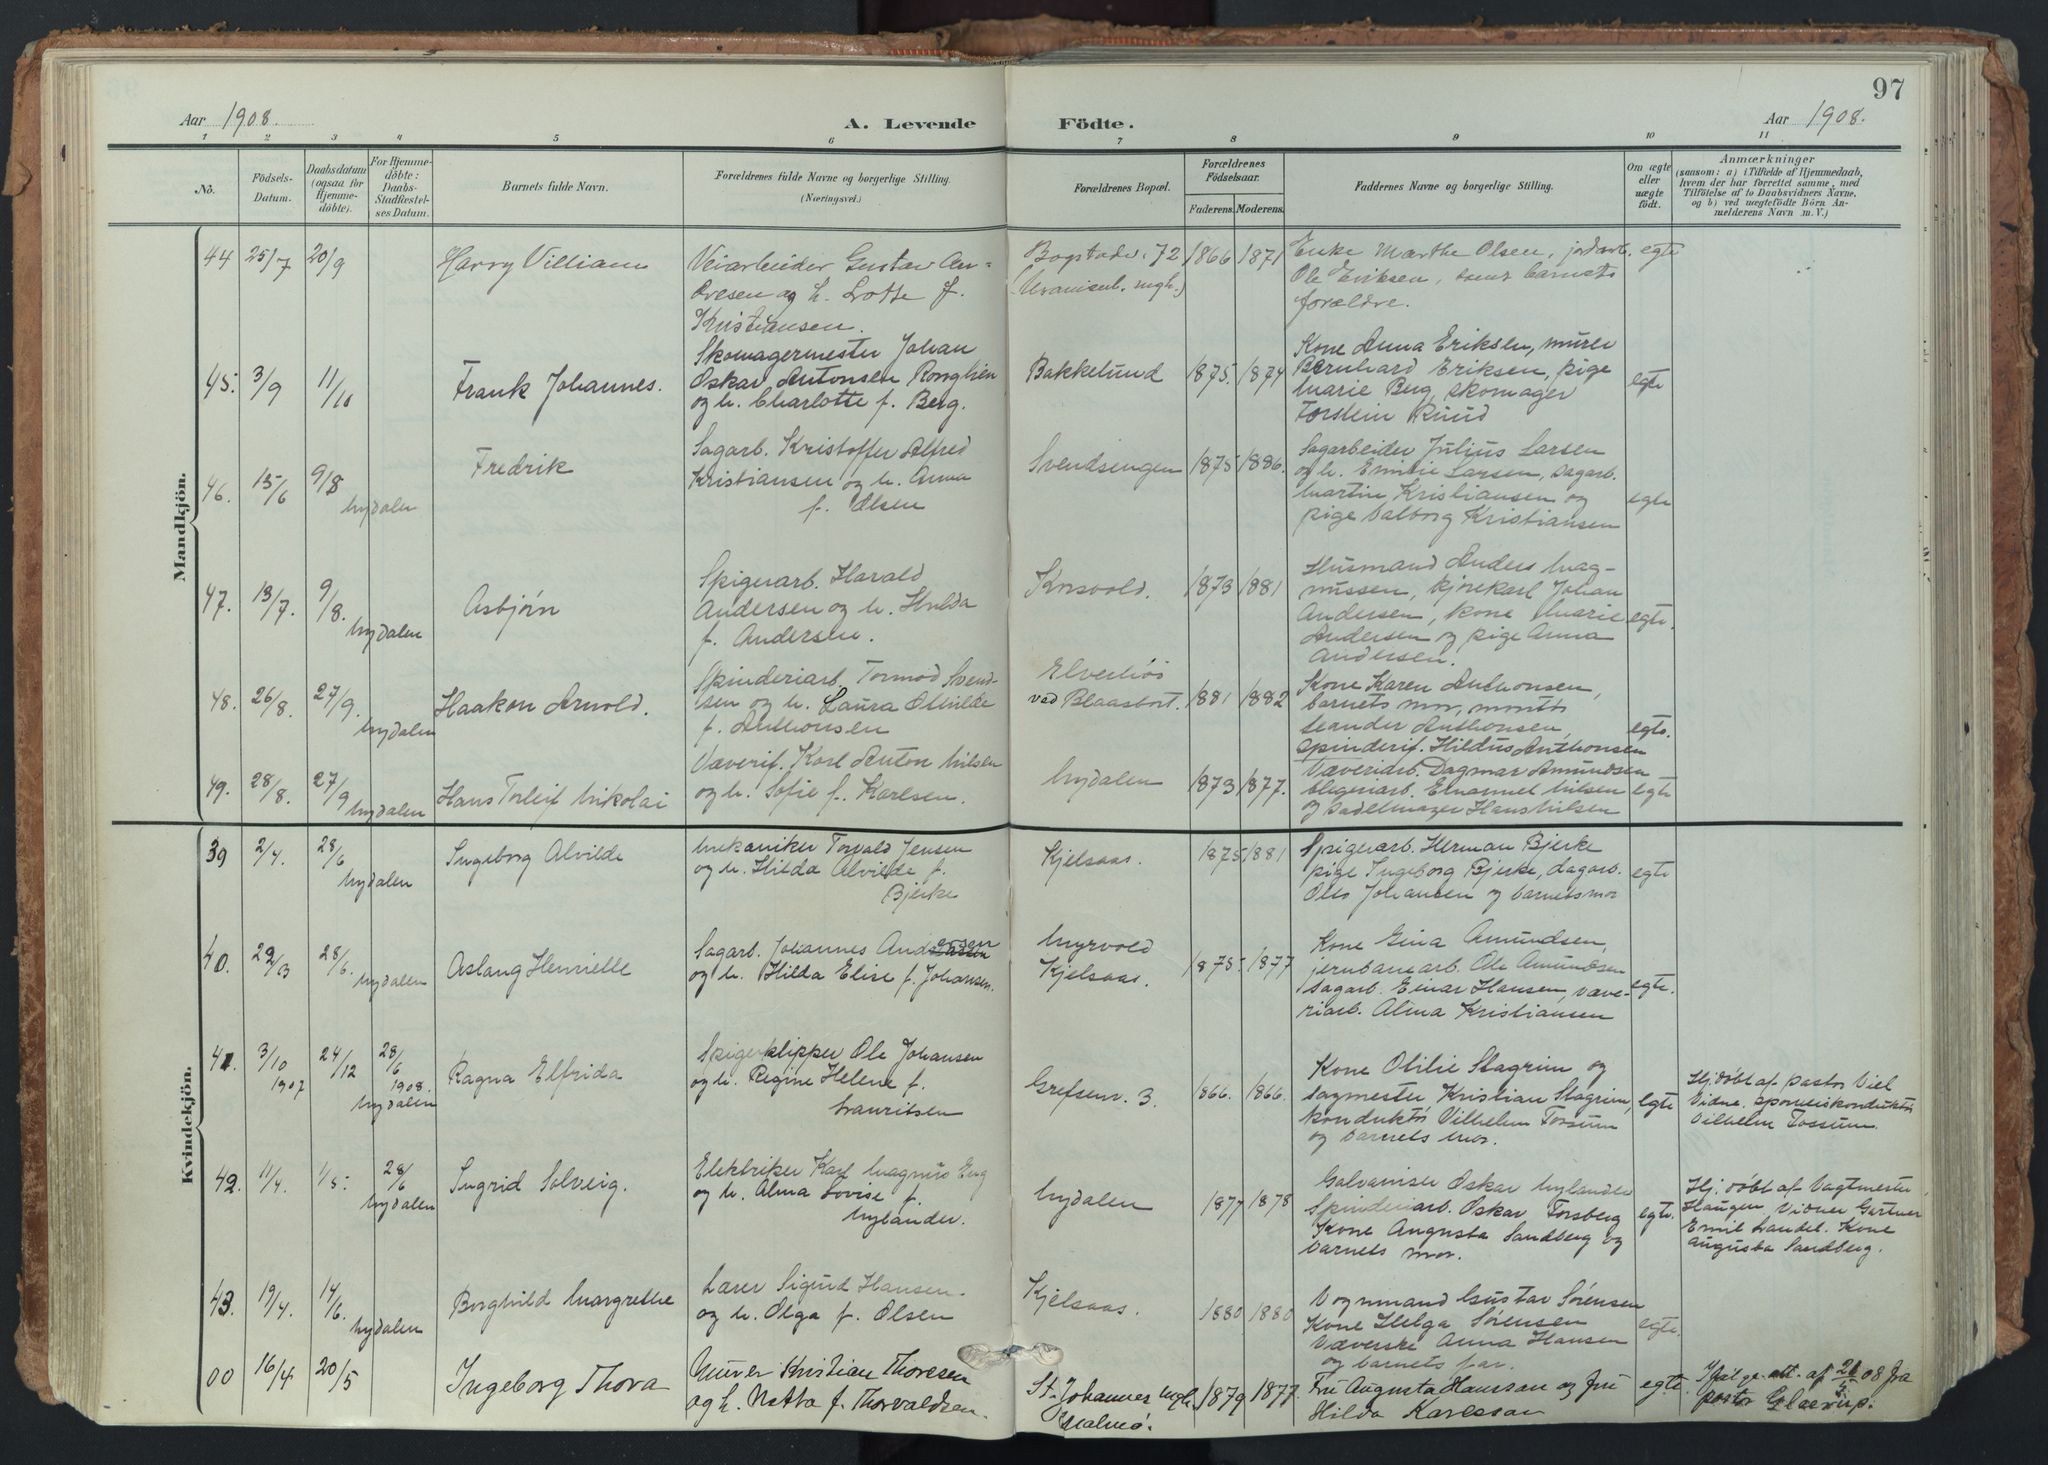 97
Aar 1908.
A. Levende Födte.
Aar 1908.
1 2 3 4 5 6 7 8 9 10 11
No.
Födsels-Datum.
Daabsdatum (ogsaa for Hjemme-döbte).
For Hjemme-döbte: Daabs-Stadfæstel-ses Datum.
Barnets fulde Navn.
Forældrenes fulde Navne og borgerlige Stilling.
(Næringsvei.)
Forældrenes Bopæl.
Forældrenes Födselsaar.
Faderens. Moderens.
Faddernes Navne og borgerlige Stilling.
Om ægte eller uægte födt.
Anmærkninger
(saasom: a) i Tilfælde af Hjemmedaab,
hvem der har forrettet samme, med
Tilföielse af to Daabsvidners Navne,
og b) ved uægtefödte Börn An-
melderens Navn m. V.)
Mandkjön.
44 25/7 20/9 Harry Villiam
Veiarbeider Gustav An-
dresen og h. Lotte f.
Kristiansen.
Bogstadv. 72
1866 1871
Enke Marthe Olsen, jordarb.
Ole Eriksen, samt barnets
forældre.
egte
45. 3/9 11/10 Frank Johannes.
Skomagermester Johan
Oskar Antonsen Ronglien
og h. Charlotte f. Berg.
Bakkelund 1875. 1874
Kone Anna Eriksen, murer
Bernhard Eriksen, pige
Marie Berg, skomager
Torstein Ruud
egte
46. 15/6 9/8 Nydalen Fredrik
Sagarb. Kristoffer Alfred
Kristiansen og h. Anna
f. Olsen
Svendsengen 1875 1886.
Sagarbeider Julius Larsen
og h. Emilie Larsen, sagarb.
Martin Kristiansen og
pige Valborg Kristiansen
egte
47. 13/7. 9/8. Nydalen Asbjørn
Spigerarb. Harald
Andersen og h. Hulda
f. Andersen.
Korsvold. 1873 1881
Husmand Anders Mag-
nussen, kjørekarl Johan
Andersen, kone Marie
Andersen og pige Anna
Andersen.
egte.
48. 26/8. 27/9. Nydalen Haakon Arnold.
Spinderiarb. Tormod Svend-
sen og h. Laura Otilde
f. Anthonsen
Elverhøi
ved Blaasbort. 1881 1882
Kone Karen Anthonsen,
barnets mor, montør
Leander Anthonsen,
spinderif. Hildus Anthonsen
egte.
49. 28/8. 27/9 Nydalen Hans Torleif Nikolai
Væverif. Karl Anton Nilsen
og h. Sofie f. Karlsen.
Nydalen 1873 1877.
Væveriarb. Dagmar Amundsen
blegeriarb. Emanuel Nilsen
og sadelmager Hans Nilsen
egte
Kvindekjön.
39 2/4. 28/6 Nydalen Ingeborg Alvilde
Mekaniker Torvald Jensen
og h. Hilda Alvilde f.
Bjerke
Kjelsaas. 1875 1881
Spigerarb. Herman Bjerke
pige Ingeborg Bjerke, dagarb.
Olis Johansen og barnets mor
egte
40. 22/3 28/6. Nydalen Aslaug Henriette
Sagarb. Johannes Andersen
og h. Hilda Elise f. Johansen.
Myrvold
Kjelsaas. 1875 1877
Kone Gina Amundsen,
jernbanearb. Ole Amundsen
sagarb. Einar Hansen, væve-
riarb. Alma Kristiansen
egte.
41. 3/10 1907 24/12 28/6 1908. Nydalen Ragna Elfrida
Spigerklipper Ole Johansen
og h. Regine Helene f.
Lauritsen
Grefsenv. 3. 1866. 1866.
Kone Otilie Stagrim og
sagmester Kristian Stagrim,
konduktør Vilhelm Tossum
og barnets mor.
egte
Hj.døbt af pastor Viel
Vidne. sporveiskonduktør
Vilhelm Tossum.
42. 11/4. 1/5. 28/6 Nydalen Ingrid Solveig.
Elektriker Karl Magnus Eng
og h. Alma Lovise f.
Nylander.
Nydalen 1877 1878
Galvanisør Oskar Nylander
Spinderiarb. Oskar Forsberg
Kone Augusta Sandberg og
barnets mor.
egte.
Hj.døbt af Vagtmester
Haugen, Vidner Gartner
Emil Landel. Kone
Augusta Sandberg.
43. 19/4. 14/6. Nydalen Borghild Margrethe
Lærer Sigurd Hansen.
og h. Olga f. Olsen
Kjelsaas. 1880 1880
Vognmand Gustav Sørensen
Kone Helga Sørensen
Væverske Anna Hansen
og barnets far.
egte.
00 16/4 20/5 Ingeborg Thora
Murer Kristian Thoresen
og h. Netta f. Thorvaldsen.
St. Johannes mgh.
Malmø. 1879 1877
Fru Augusta Hansson og fru
Hilda Karlsson
egte.
Ifølge att. af 08 fra
pastor Glaerup.